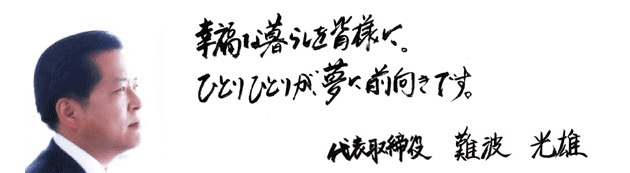 幸福な暮らしを皆様に。
ひとりひとりが、夢に前向きです。
代表取締役 難波 光雄